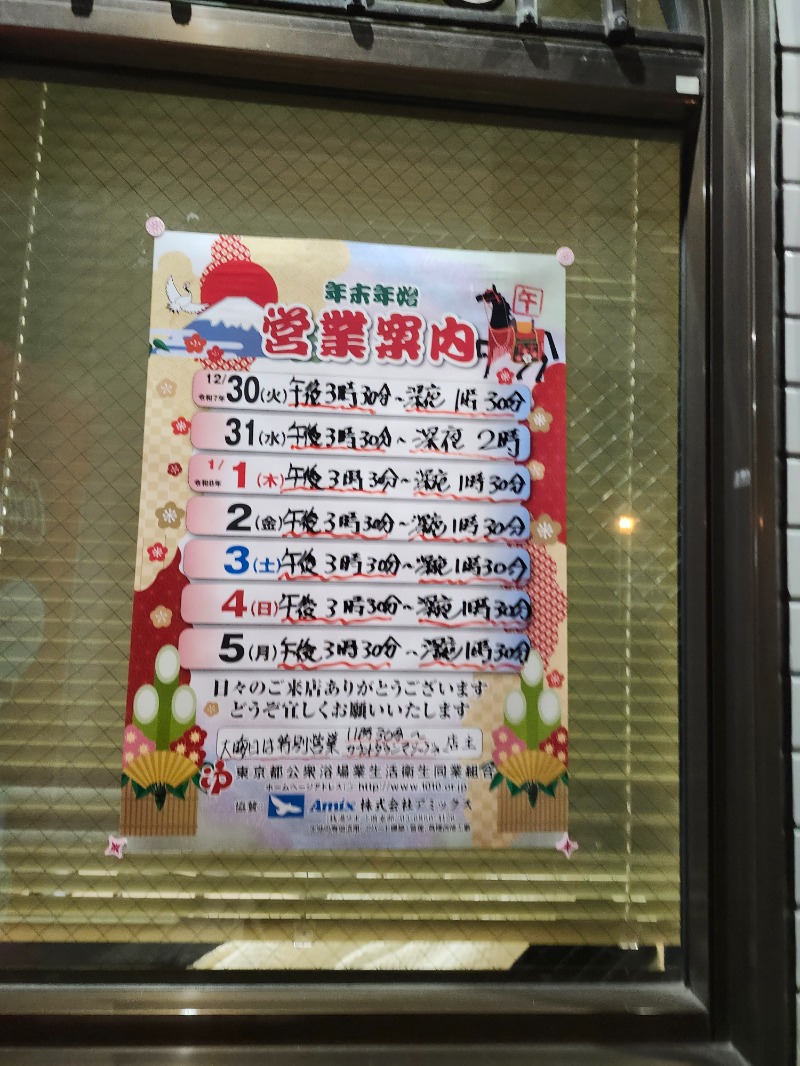 年末年始
営業案内
午
12/30(火)午後3時30分~深夜1時30分
令和7年
31(水)午後3時30分~深夜2時
1/1(木)午後3時30分~深夜1時30分
令和8年
2(金)午後3時30分~深夜1時30分
3(土)午後3時30分~深夜1時30分
4(日)午後3時30分~深夜1時30分
5(月)午後3時30分~深夜1時30分
日々のご来店ありがとうございます
どうぞ宜しくお願いいたします
大晦日は特別営業 店主
ゆ 東京都公衆浴場業生活衛生同業組合
ホームページアドレス http://www.1010.or.jp
協賛: Amix 株式会社アミックス